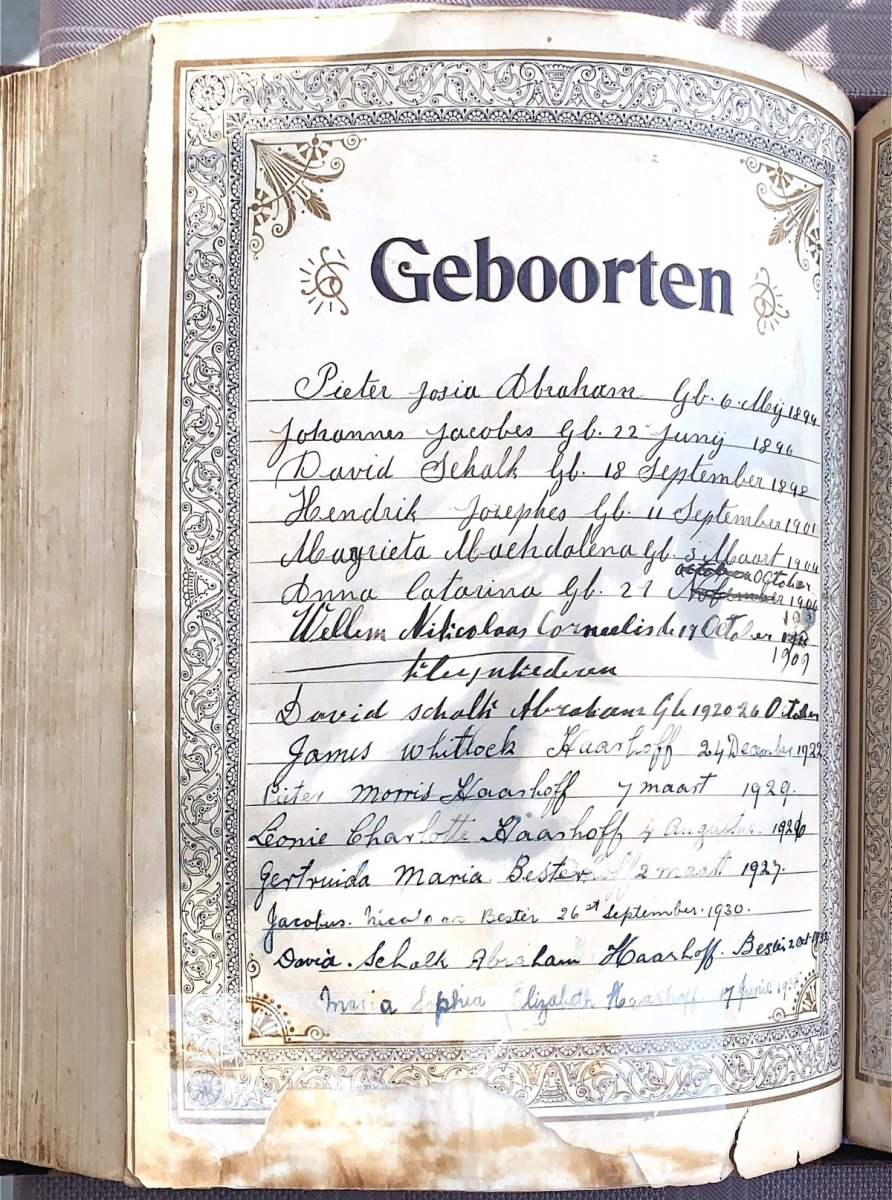 Geboorten
Pieter Josia Abraham Gb. 6 Mij 1894
Johannes Jacobes Gb. 22 Junij 1896
David Schalk Gb. 18 September 1898
Hendrik Josephes Gb. 11 September 1901
Magrieta Machdalena Gb. 3 Maart 1904
October
Anna Catarina Gb. 21 1906
Willem Nikicolaas Corneelis de 17 October
1909
David schalk Abraham Gb 1920 26 October
James Whitlock Haarhoff 24 December 1922
Pieter Morris Haarhoff 7 maart 1929.
Leonie Charlotte Haarhoff 4 Augustus. 1926
Gertruida Maria Bester 2 maart 1927.
Jacobus. Nicolaas Bester 26st September. 1930.
David. Schalk Abraham Haarhoff. Bester 2 Oct 1932
Maria Sophia Elizabeth Haarhoff. 17 Junie